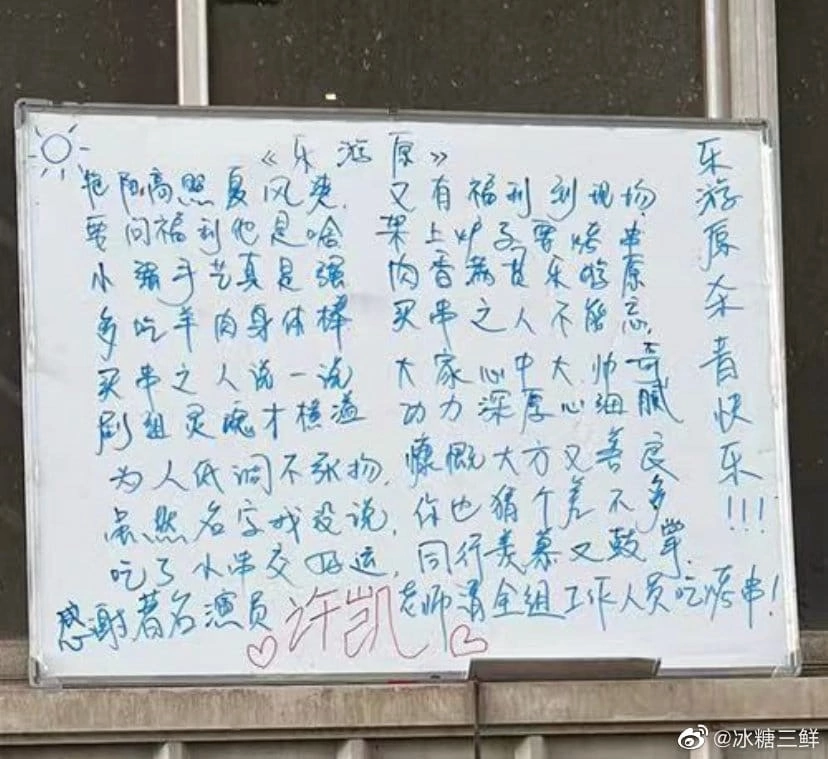 《乐游原》
艳阳高照夏风爽, 又有福利到现场,
要问福利他是啥 架上炉子要烤串
小强手艺真是强 肉香满其乐游原
多吃羊肉身体棒 买串之人不能忘,
买串之人说一说 大家心中大帅哥
剧组灵魂才横溢 功力深厚心细腻
为人低调不张扬, 慷慨大方又善良
虽然名字我没说, 你也猜个差不多
吃了小串交好运, 同行羡慕又鼓掌.
感谢著名演员许凯老师请全组工作人员吃烤串!
乐游原杀青快乐!!!
@冰糖三鲜